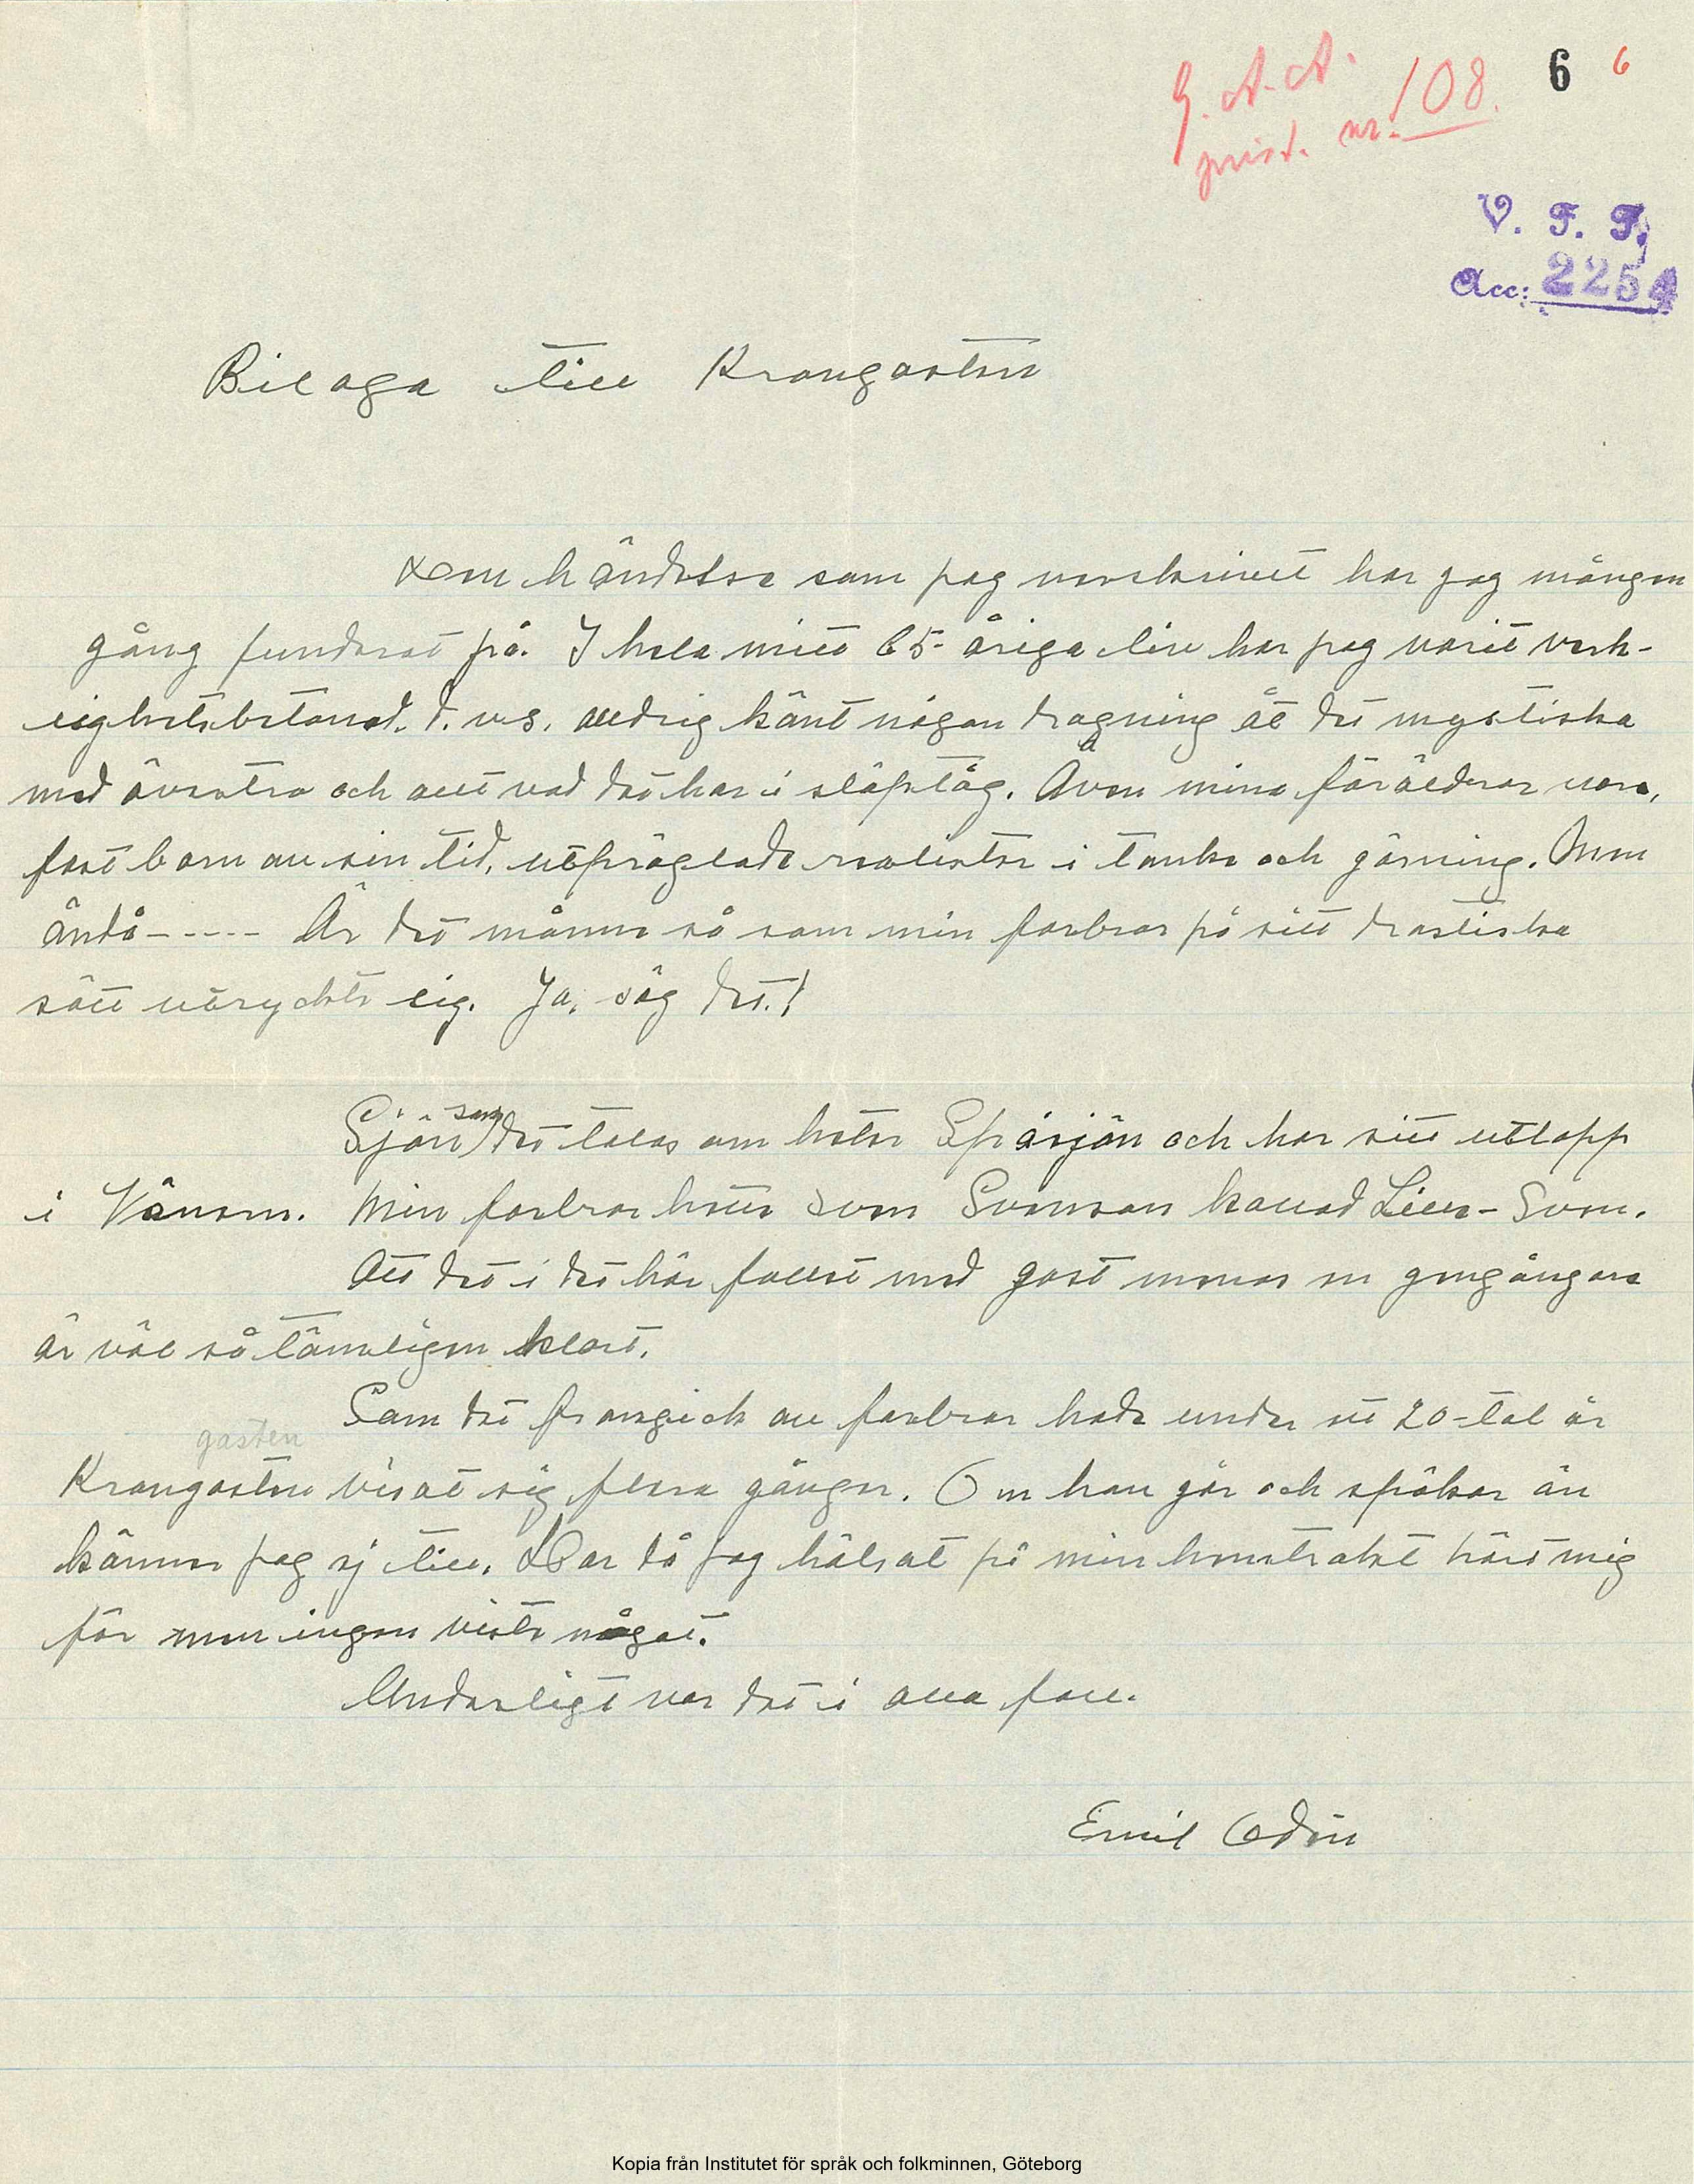 G. A. A.
prist. nr. 108.
6 6
V. F. F.
Acc: 2254
Bilaga till Krangasten
Den händelse som jag nerskrivit har jag mången
gång funderat på. I hela mitt 65-åriga liv har jag varit verk-
lighetsbetonad. D.v.s. aldrig känt någon dragning åt det mystiska
med övertro och allt vad det har i släptåg. Även mina föräldrar voro,
fast barn av sin tid, utpräglade realister i tanke och gärning. Men
ändå----- Är det månne så som min farbror på sitt drastiska
sätt utryckte sig. Ja, säg det.!
Sjön som det talas om heter Spåsjön och har sitt utlopp
i Vänern. Min farbror hette Sven Svenson kallad Lill-Sven.
Att det i det här fallet med gast menas en gengångare
är väl så tämligen klart.
Som det framgick av farbror hade under ett 20-tal år
gasten
Krangasten visat sig flera gånger. Om han går och spökar än
känner jag ej till. Har då jag hälsat på min hemtrakt hört mig
för men ingen visste något.
Underligt var det i alla fall.
Emil Odén
Kopia från Institutet för språk och folkminnen, Göteborg